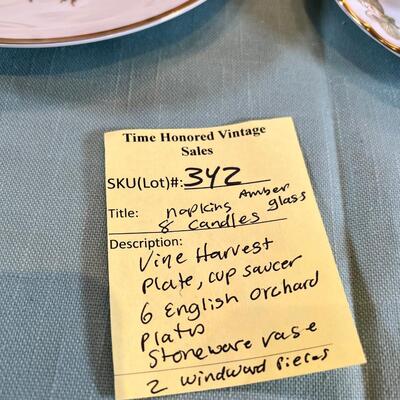 Time Honored Vintage
Sales
SKU(Lot)#: 342
Title: napkins Amber glass
8 candles
Description:
Vine Harvest
Plate, cup saucer
6 English Orchard
Plates
Stoneware vase
2 windward pieces